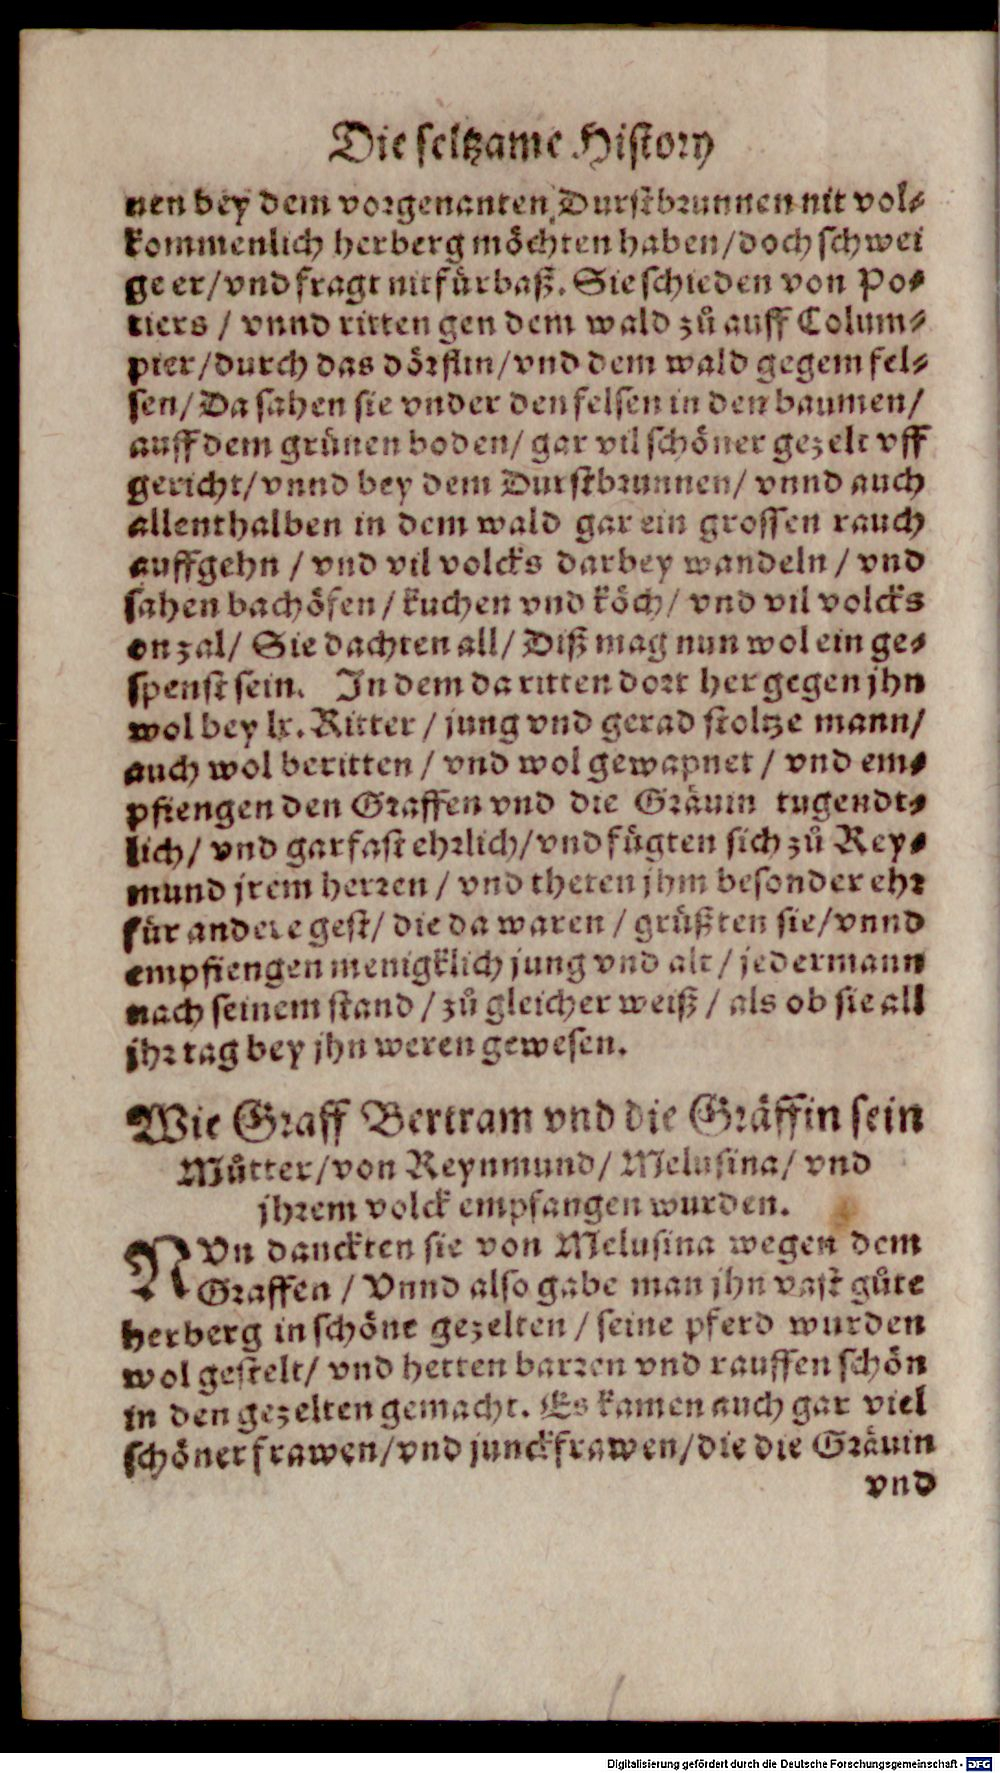 Die seltzame History
nen bey dem vorgenanten Durstbrunnen nit vol⸗
kommenlich herberg möchten haben/doch schwei
ge er/vnd fragt nit fürbaß. Sie schieden von Po⸗
tiers / vnnd ritten gen dem wald zů auff Colum⸗
pier/durch das dörflin/vnd dem wald gegem fel⸗
sen/ Da sahen sie vnder den felsen in den baumen/
auff dem grünen boden/ gar vil schöner gezelt vff
gericht/vnnd bey dem Durstbrunnen/ vnnd auch
allenthalben in dem wald gar ein grossen rauch
auffgehn / vnd vil volcks darbey wandeln / vnd
sahen bachöfen / kuchen vnd köch/ vnd vil volcks
on zal/ Sie dachten all/ Diß mag nun wol ein ge⸗
spenst sein. In dem da ritten dort her gegen jhn
wol bey lx. Ritter / jung vnd gerad stoltze mann/
auch wol beritten / vnd wol gewapnet / vnd em⸗
pfiengen den Graffen vnd die Gräuin tugendt⸗
lich/ vnd gar fast ehrlich/vnd fügten sich zů Rey⸗
mund jrem herren / vnd theten jhm besonder ehr
für andere gest/ die da waren / grüßten sie/vnnd
empfiengen menigklich jung vnd alt / jedermann
nach seinem stand / zů gleicher weiß / als ob sie all
jhr tag bey jhn weren gewesen.
Wie Graff Bertram vnd die Gräffin sein
Můtter/von Reynmund/ Melusina/ vnd
jhrem volck empfangen wurden.
NVn danckten sie von Melusina wegen dem
Graffen / Vnnd also gabe man jhn vast gůte
herberg in schöne gezelten / seine pferd wurden
wol gestelt/ vnd hetten barren vnd rauffen schön
in den gezelten gemacht. Es kamen auch gar viel
schöner frawen/vnd junckfrawen/die die Gräuin
vnd
Digitalisierung gefördert durch die Deutsche Forschungsgemeinschaft - DFG